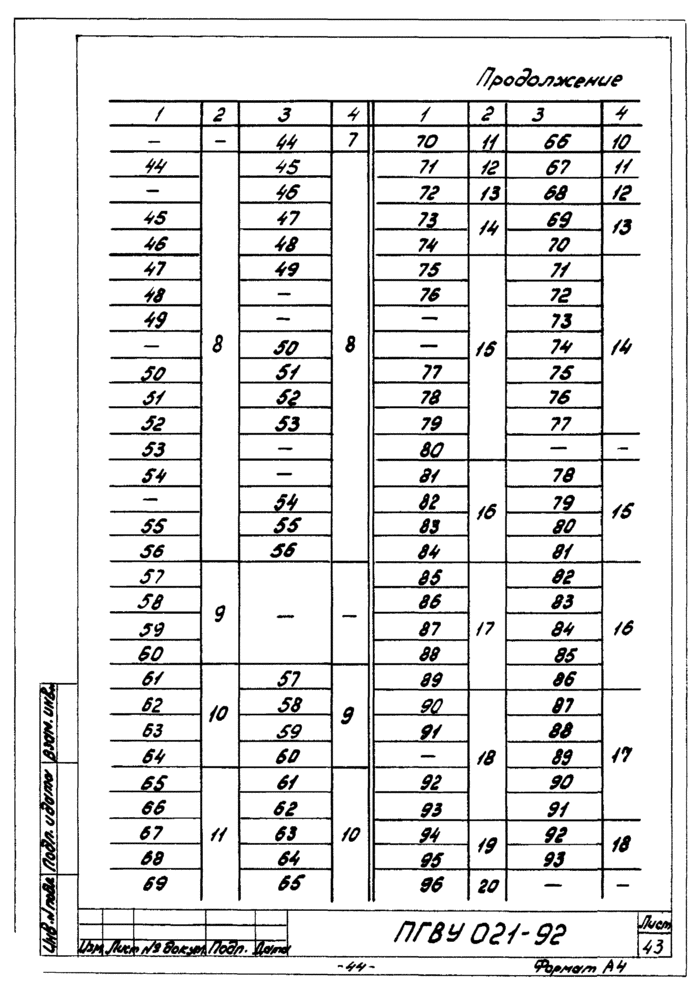 Продолжение
1 2 3 4 1 2 3 4
— — 44 7 70 11 66 10
44 45 71 12 67 11
— 46 72 13 68 12
45 47 73 14 69 13
46 48 74 70
47 49 75 71
48 — 76 72
49 — — 73
— 8 50 8 — 15 74 14
50 51 77 75
51 52 78 76
52 53 79 77
53 — 80 — —
54 — 81 78
— 54 82 16 79 15
55 55 83 80
56 56 84 81
57 85 82
58 9 — — 86 83
59 87 17 84 16
60 88 85
61 57 89 86
62 10 58 9 90 87
63 59 91 88
64 60 — 18 89 17
65 61 92 90
66 62 93 91
67 11 63 10 94 19 92 18
68 64 95 93
69 65 96 20 — —
Инв. № подл. Подп. и дата Взам. инв. №
Изм. Лист № докум. Подп. Дата
ПГВУ 021-92
Лист
43
-44-
Формат А4